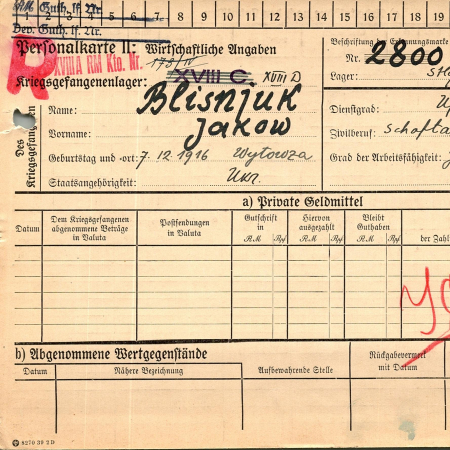 1 2 3 4 5 6 7 8 9 10 11 12 13 14 15 16 17 18 19
RM Guth. lf. Nr.
Dev. Guth. lf. Nr.
Personalkarte II: Wirtschaftliche Angaben
XVIII A RM Kto. Nr.
Kriegsgefangenenlager: XVIII C. XVIII D
Beschriftung der Erkennungsmarke
Nr. 2800
Lager:
Des Kriegsgefangenen
Name: Blisnjuk
Vorname: Jakow
Geburtstag und -ort: 7.12.1916 Wytowza
Staatsangehörigkeit: Ukr.
Dienstgrad:
Zivilberuf: Schofta
Grad der Arbeitsfähigkeit:
a) Private Geldmittel
Datum
Dem Kriegsgefangenen abgenommene Beträge in Valuta
Postsendungen in Valuta
Gutschrift in
RM Rpf
Hiervon ausgezahlt
RM Rpf
Bleibt Guthaben
RM Rpf
der Zahl
b) Abgenommene Wertgegenstände
Datum
Nähere Bezeichnung
Aufbewahrende Stelle
Rückgabevermerk mit Datum
8270 39 2D